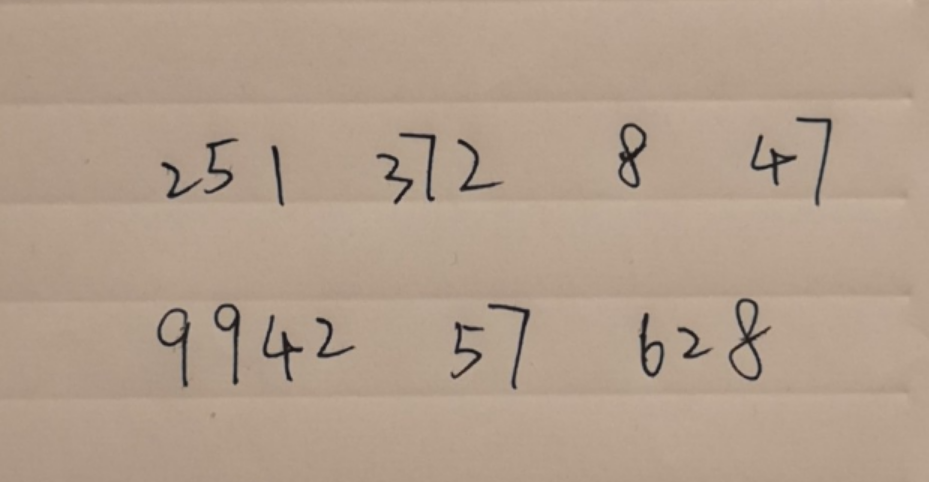 251 372 8 47
9942 57 628